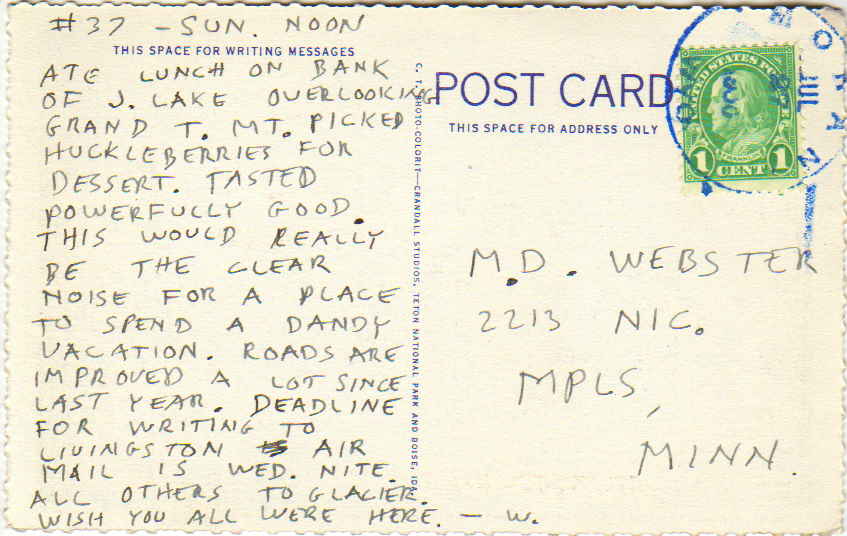 #37 - SUN. NOON
THIS SPACE FOR WRITING MESSAGES
ATE LUNCH ON BANK
OF J. LAKE OVERLOOKING
GRAND T. MT. PICKED
HUCKLEBERRIES FOR
DESSERT. TASTED
POWERFULLY GOOD.
THIS WOULD REALLY
BE THE CLEAR
NOISE FOR A PLACE
TO SPEND A DANDY
VACATION. ROADS ARE
IMPROVED A LOT SINCE
LAST YEAR. DEADLINE
FOR WRITING TO
LIVINGSTON AIR
MAIL IS WED. NITE.
ALL OTHERS TO GLACIER.
WISH YOU ALL WERE HERE. - W.
C. T. PHOTO-COLORIT—CRANDALL STUDIOS, TETON NATIONAL PARK AND BOISE, IDA.
POST CARD
THIS SPACE FOR ADDRESS ONLY
UNITED STATES POSTAGE
FRANKLIN
1 CENT 1
MORAN
JUL
27
WYO
M.D. WEBSTER
2213 NIC.
MPLS,
MINN.